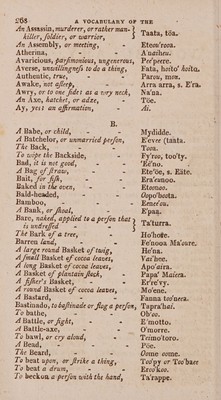 268 A VOCABULARY OF THE
An Assassin, murderer, or rather man-
killer, soldier, or warrior, } Taata, tòa.
An Assembly, or meeting, Eteou'rooa.
Atherina, A'naiheu.
Avaricious, parsimonious, ungenerous, Pee'peere.
Averse, unwillingness to do a thing, Fata, hoito' hoito.
Authentic, true, Parou, mou.
Awake, not asleep, Arra arra, s. E'ra.
Awry, or to one side; as a wry neck, Na'na.
An Axe, hatchet, or adze, Töe.
Ay; yes; an affirmation, Ai.
B.
A Babe, or child, Mydidde.
A Batchelor, or unmarried person, E'evee (taata.
The Back, Tooa.
To wipe the Backside, Fy'roo, too'ty.
Bad, it is not good, 'Ee'no.
A Bag of straw, Ete'öe, s. Eäte.
Bait, for fish, Era'eunoo.
Baked in the oven, Etoonoo.
Bald-headed, Oopo'boota.
Bamboo, Eenee'ou.
A Bank, or shoal, E'paa.
Bare, naked, applied to a person that
is undressed } Ta'turra.
The Bark of a tree, Ho'hoôre.
Barren land, Fe'nooa Ma'oure.
A large round Basket of twig, He'na.
A small Basket of cocoa leaves, Vai'hee.
A long Basket of cocoa leaves, Apo'aira.
A Basket of plantain stock, Papa' Maieea.
A fisher's Basket, Er're'vy.
A round Basket of cocoa leaves, Mo'ene.
A Bastard, Fanna too'nera.
Bastinado, to bastinade or flog a person, Tapra'hai.
To bathe, Ob'oo.
A Battle, or fight, E'motto.
A Battle-axe, O'morre.
To bawl, or cry aloud, Teimo'toro.
A Bead, Pöe.
The Beard, Oome oome.
To beat upon, or strike a thing, Too'py or Too'baee
To beat a drum, Eroo'koo.
To beckon a person with the hand, Ta'rappe.